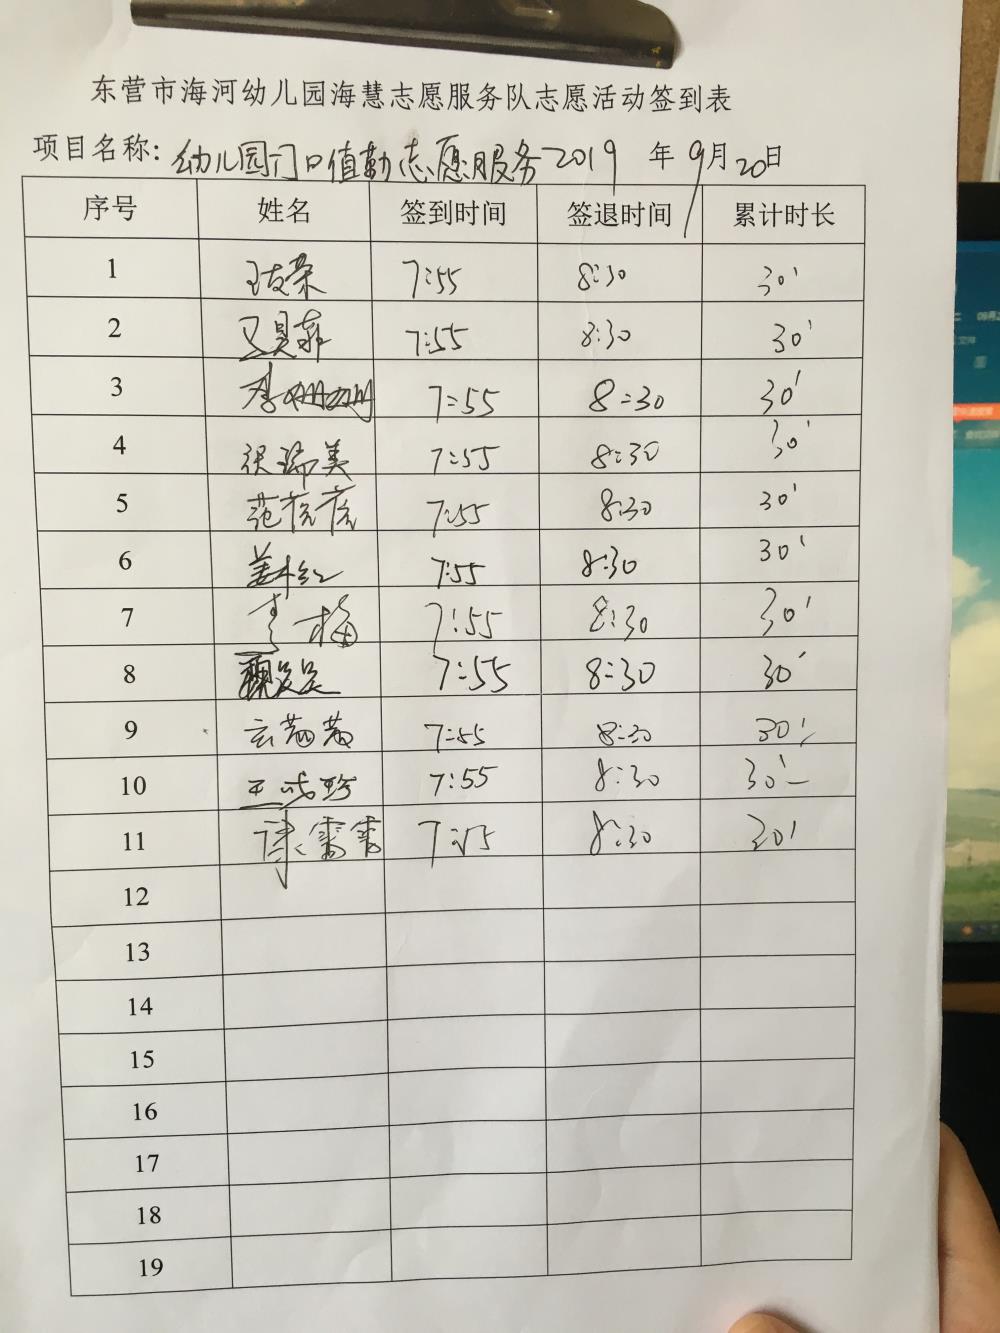 东营市海河幼儿园海慧志愿服务队志愿活动签到表
项目名称：幼儿园门口值勤志愿服务 2019 年 9月20日
序号 姓名 签到时间 签退时间 累计时长
1 7:55 8:30 30'
2 7:55 8:30 30'
3 李姗姗 7:55 8:30 30'
4 张瑞美 7:55 8:30 30'
5 7:55 8:30 30'
6 姜红 7:55 8:30 30'
7 李梅 7:55 8:30 30'
8 7:55 8:30 30'
9 7:55 8:30 30'
10 7:55 8:30 30'
11 雷雷 7:55 8:30 30'
12
13
14
15
16
17
18
19